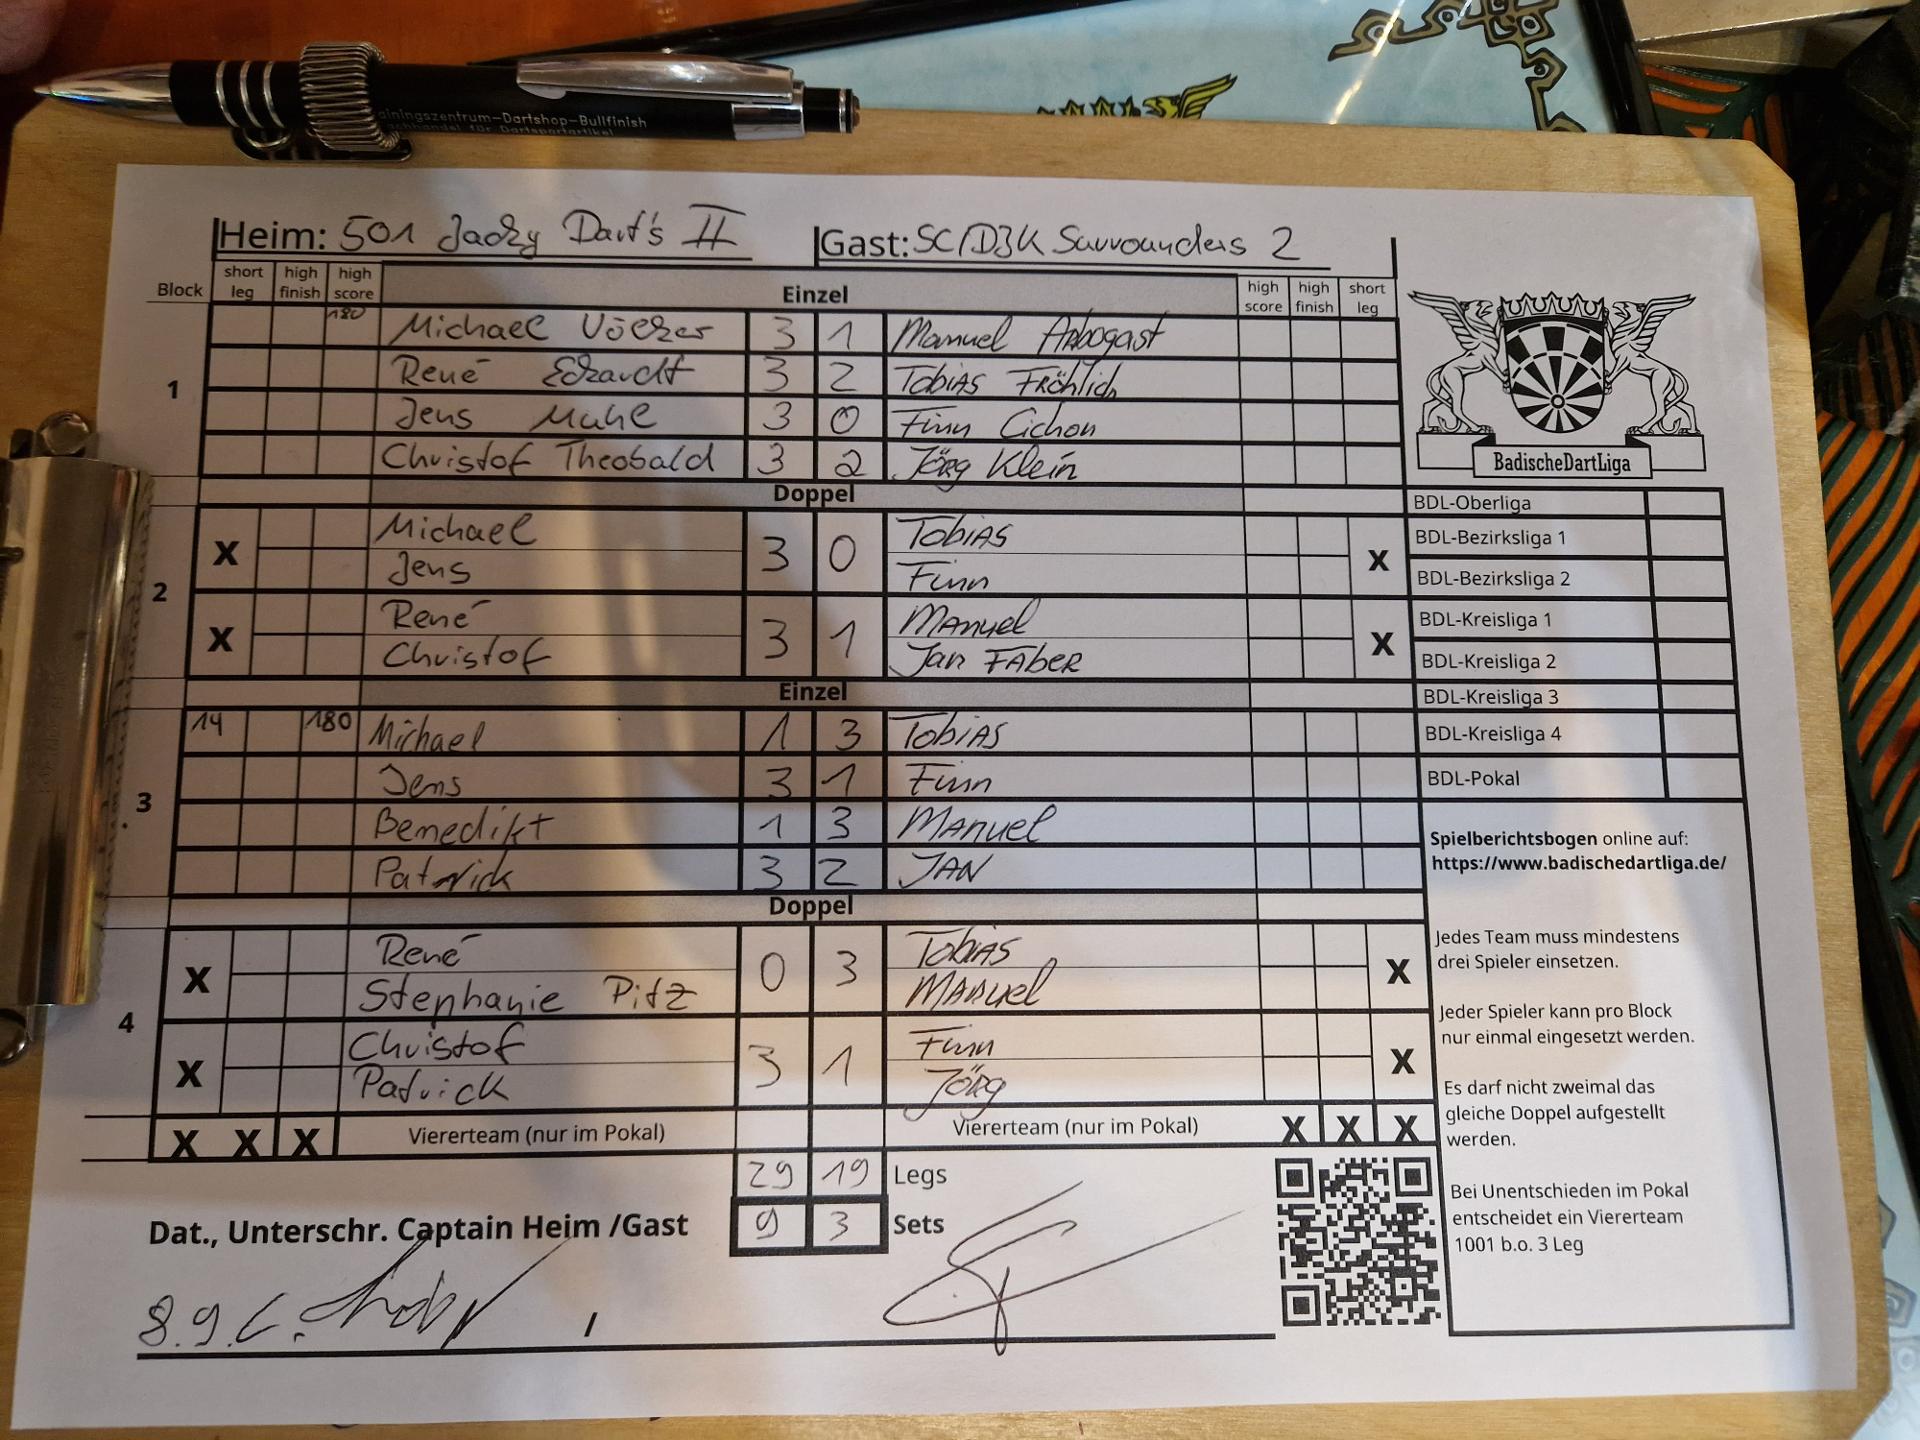 ainingszentrum-Dartshop-Bullfinish
achhandel für Dartsportartikel
Heim: 501 Jacky Dart's II Gast: SC/DJK Surrounders 2
Block short leg high finish high score Einzel high score high finish short leg
1
180 Michael Völker 3 1 Manuel Arbogast
René Eckardt 3 2 Tobias Fröhlich
Jens Muhl 3 0 Finn Cichon
Christof Theobald 3 2 Jörg Klein
Doppel
2
X Michael 3 0 Tobias X
Jens Finn
X René 3 1 Manuel X
Christof Jan Faber
Einzel
3
14 180 Michael 1 3 Tobias
Jens 3 1 Finn
Benedikt 1 3 Manuel
Patrick 3 2 JAN
Doppel
4
X René 0 3 Tobias X
Stephanie Pitz Manuel
X Christof 3 1 Finn X
Patrick Jörg
X X X Viererteam (nur im Pokal) Viererteam (nur im Pokal) X X X
29 19 Legs
Dat., Unterschr. Captain Heim /Gast 9 3 Sets
8.9. /
BadischeDartLiga
BDL-Oberliga
BDL-Bezirksliga 1
BDL-Bezirksliga 2
BDL-Kreisliga 1
BDL-Kreisliga 2
BDL-Kreisliga 3
BDL-Kreisliga 4
BDL-Pokal
Spielberichtsbogen online auf:
https://www.badischedartliga.de/
Jedes Team muss mindestens
drei Spieler einsetzen.
Jeder Spieler kann pro Block
nur einmal eingesetzt werden.
Es darf nicht zweimal das
gleiche Doppel aufgestellt
werden.
Bei Unentschieden im Pokal
entscheidet ein Viererteam
1001 b.o. 3 Leg